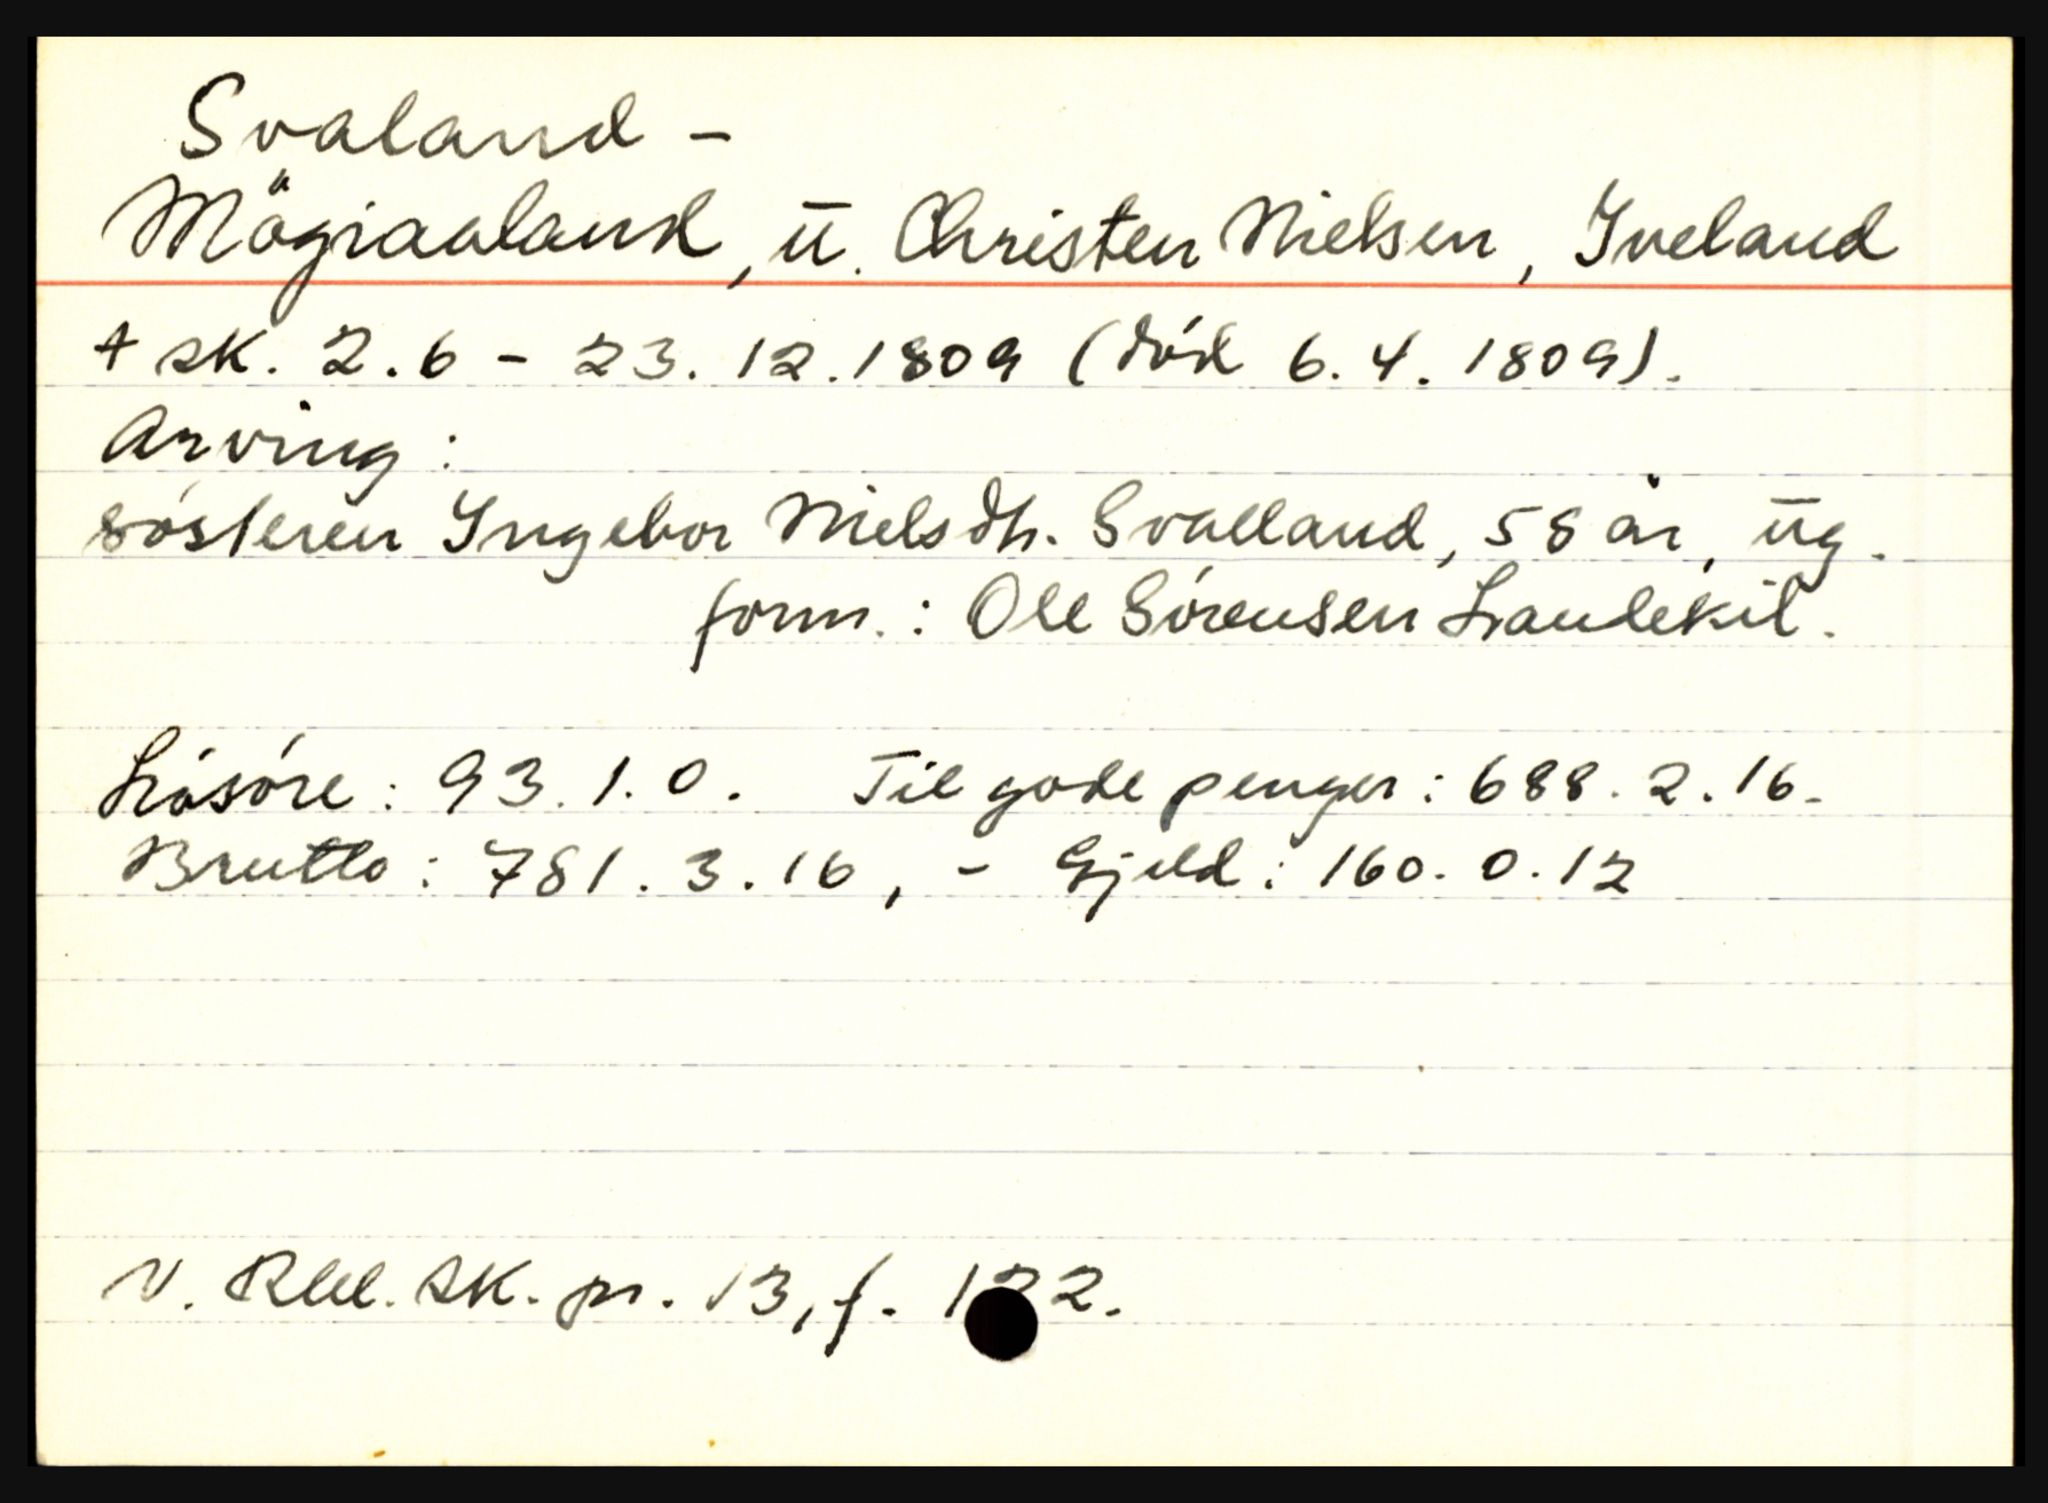 Svaland -
u. Christen Nielsen, Iveland
+ sk. 2.6 - 23.12.1809 (död 6.4.1809).
Arving:
sösteren Ingebor Nielsdtr. Svalland, 58 år, ug.
form.: Ole Sörensen Landekil.
Lösöre: 93.1.0. Tilgode penger: 688.2.16.
Brutto: 781.3.16, - Gjeld: 160.0.12
V. Rbl. sk. pr. 13, f.